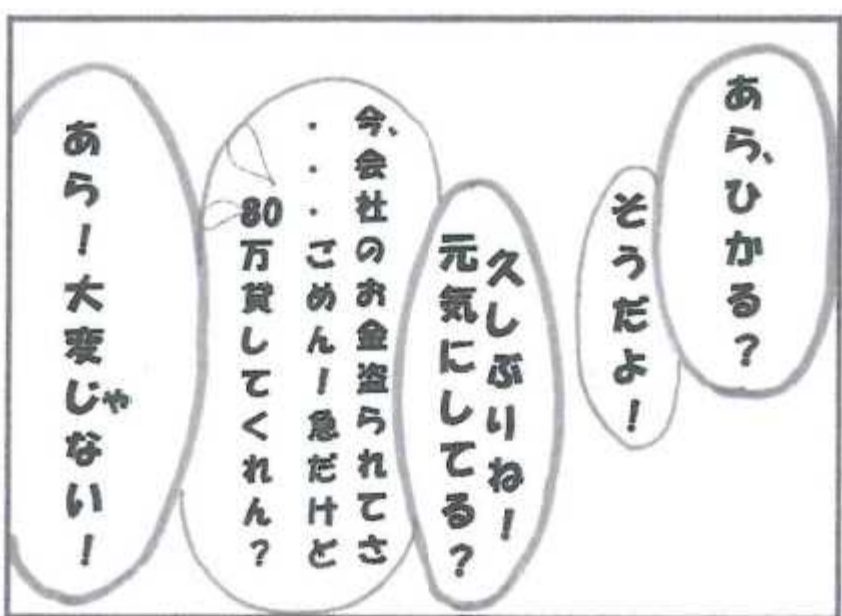 あら、ひかる？
そうだよ！
久しぶりね！
元気にしてる？
今、会社のお金盗られてさ
・・・ごめん！急だけど
80万貸してくれん？
あら！大変じゃない！